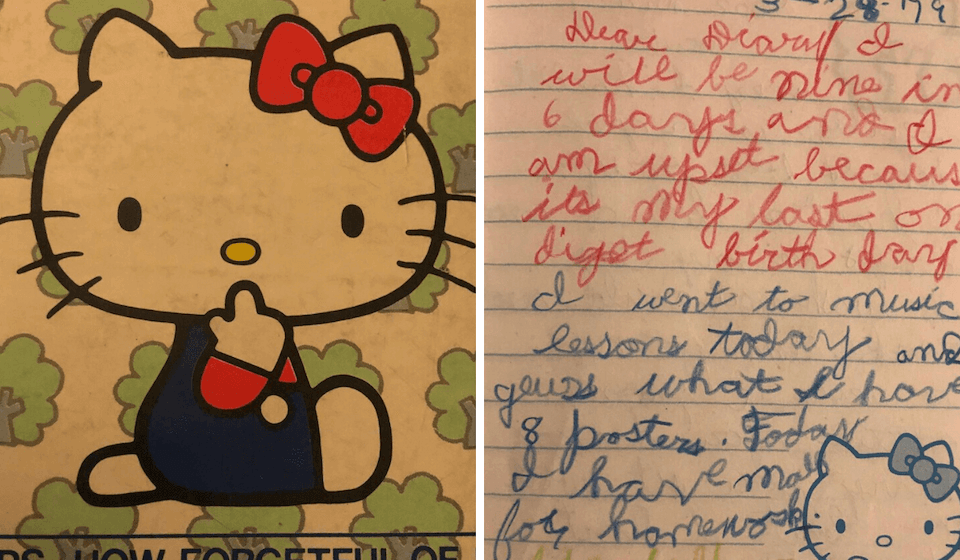 RS, HOW FORGETFUL OF
3-28-79
Dear Diary I
will be nine in
6 days and I
am upset becaus
its my last on
diget birth day
I went to music
lessons today and
guess what I have
8 posters. Today
I have
for homework.